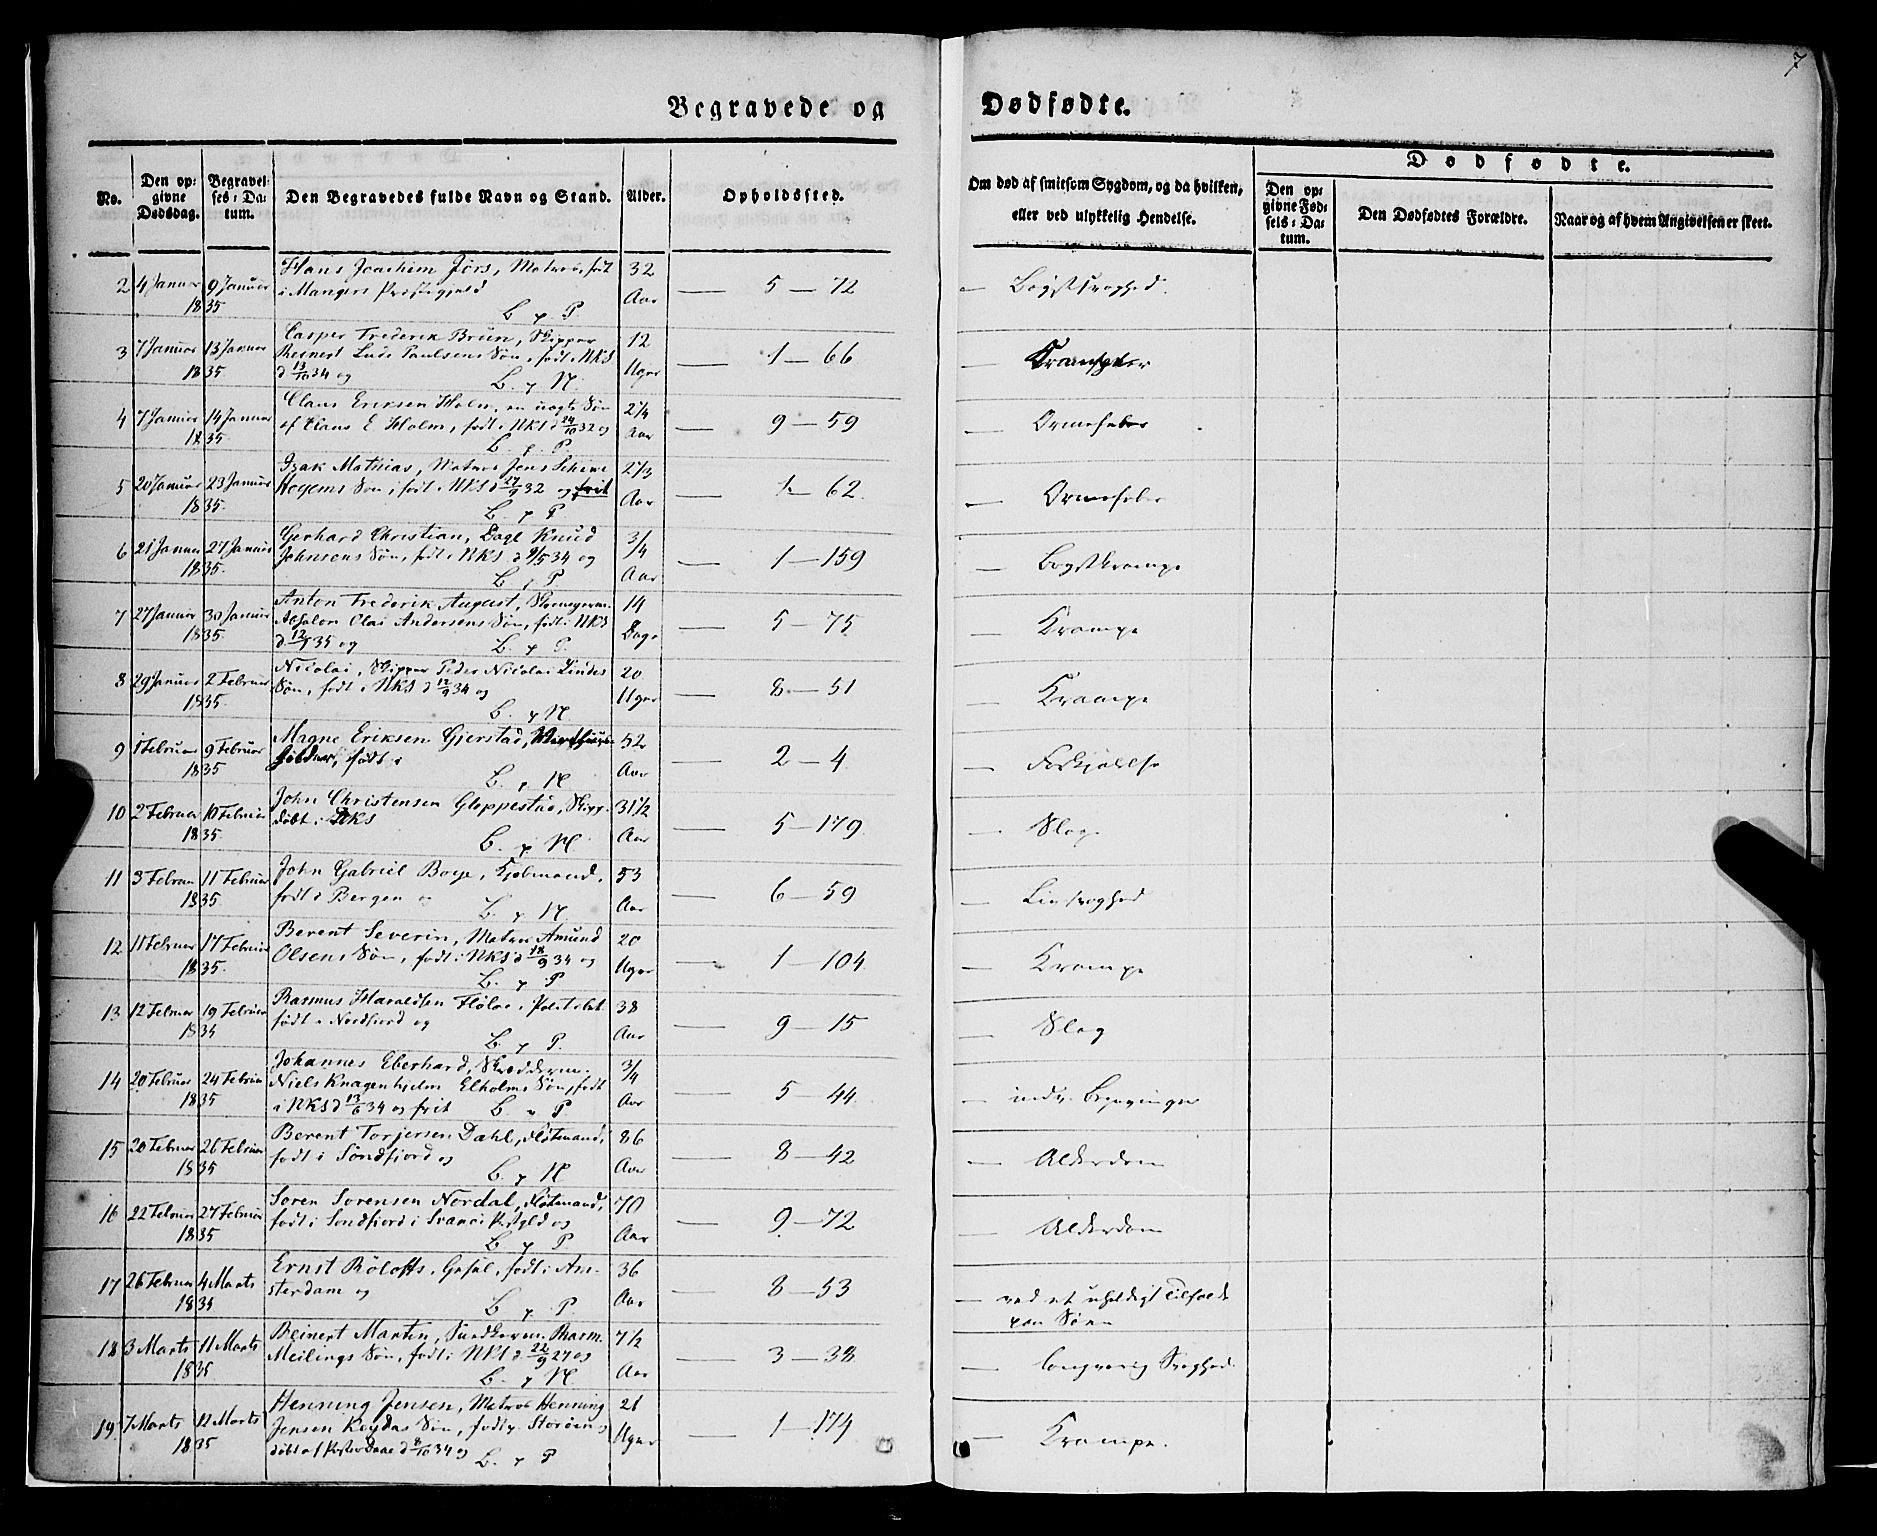 7
Begravede og Dødfødte.
No.
Den op: givne Dødsdag.
Begravel: ses: Da: tum.
Den Begravedes fulde Navn og Stand.
Alder.
Opholdssted.
Om død af smitsom Sygdom, og da hvilken, eller ved ulykkelig Hendelse.
Dødfødte.
Den op: givne Fød: sels: Da: tum.
Den Dødfødtes Forældre.
Naar og af hvem Angivelsen er skeet.
2 4 Januar 9 Januar Hans Joachim Jørs, Matros, født 32
1835 i Mangers Præstegjeld Aar 5 — 72 — Brystsvaghed.
B. p. P.
3 7 Januar 13 Januar Casper Frederik Brun, Skipper 12
1835 Reinert Paulsens Søn, født i NKS Uger 1 — 66 —
d 13/10 34 og B. p. N.
4 7 Januar 14 Januar Claus Eriksen Holm, en uægte Søn 2 1/4
1835. af Claus E Holm, født i NKS d 24/10 32 og Aar 9 — 59 — Ormefeber
B. p. P.
5 20 Januar 23 Januar Isak Mathias, Matros Jens 2 1/3
1835. Søn, født i NKS d 27/9 32 og frit Aar 1 — 62. — Ormefeber
B. p. P
6 21 Januar 27 Januar Gerhard Christian, Dagl Knud 3/4
1835. Johnsens Søn, født i NKS d 9/5 34 og Aar 1 — 159 — Brystkrampe
B. p. P.
7 27 Januar 30 Januar Anton Frederik August, 14
1835. Absalon Clas Andersens Søn, født i NKS Dage 5 — 75 — Krampe
d 12/1 35 og B. p. P.
8 29 Januar 2 Februar Nicolai, Skipper Peder Nicolai Lindes 20
1835. Søn, født i NKS d 12/9 34 og Uger 8 — 51 — Krampe
B. p. N.
9 1 Februar 9 Februar Magne Eriksen Gjerstad, 52
1835 født i Aar 2 — 4. — Forkjølelse
B. p. N
10 2 Februar 10 Februar John Christensen Gloppestad, Skipp. 31 1/2
1835. døbt i NKS Aar 5 — 179. — Slag
B. p. N.
11 3 Februar 11 Februar John Gabriel Boye, Kjøbmand, 53
1835. født i Bergen og Aar 6 — 59 —
B. p. N.
12 11 Februar 17 Februar Berent Severin, Matros Amund 20
1835. Olsens Søn, født i NKS d 18/9 34 og Uger 1 — 104. — Krampe
B. p. P
13 12 Februar 19 Februar Rasmus Haraldsen Fløloe, Politibet. 38
1835 født i Nordfjord og Aar 9 — 15 — Slag
B. p. P.
14 20 Februar 24 Februar Johannes Eberhard, Skrædderm. 3/4
1835 Niels Knagenhjelm Elholms Søn, født Aar 5 — 44. —
i NKS d 13/6 34 og frit B. p P.
15 20 Februar 26 Februar Berent Torjersen Dahl, Fløtmand, 86
1835 født i Søndfjord og Aar 8 — 42 — Alderdom
B. p N
16 22 Februar 27 Februar Søren Sørensen Nordal, Fløtmand, 70
1835 født i Sondfjord i Prstgld og Aar 9 — 72 — Alderdom
B. p P
17 26 Februar 4 Marts Ernst Roloffs, født i Am- 36
1835 sterdam og Aar 8 — 53 — ved et uheldigt Tilfælde
B. p. P. paa Søen
18 3 Marts 11 Marts Reinert Martin, Rasm. 7 1/2
1835 Meilings Søn, født i NKS d 22/9 27 og Aar 3 — 38 — langvarig Svaghed.
B. p N.
19 7 Marts 12 Marts Henning Jensen, Matros Henning 21
1835 Jensen Søn, født p. Storøen og Uger 1 — 174 — Krampe.
døbt af d 8/10 34 og B. p P